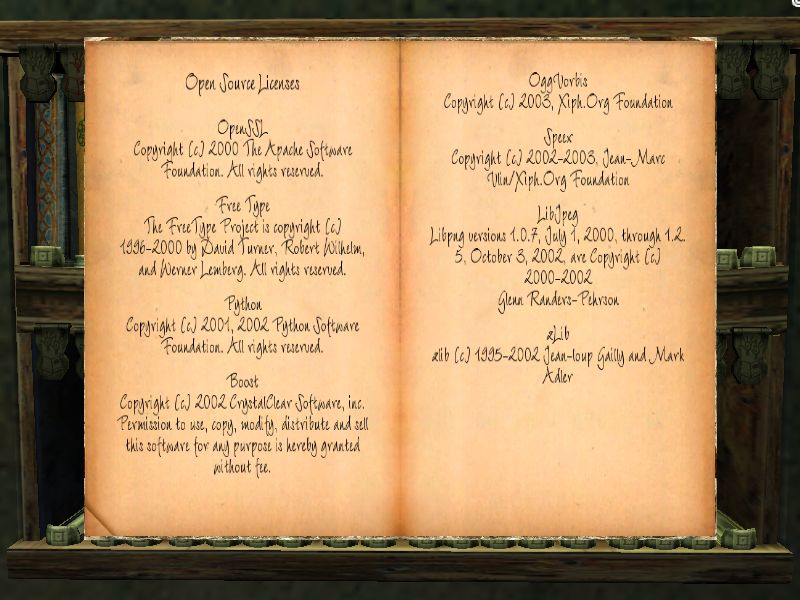 Open Source Licenses
OpenSSL
Copyright (c) 2000 The Apache Software
Foundation. All rights reserved.
Free Type
The FreeType Project is copyright (c)
1996-2000 by David Turner, Robert Wilhelm,
and Werner Lemberg. All rights reserved.
Python
Copyright (c) 2001, 2002 Python Software
Foundation. All rights reserved.
Boost
Copyright (c) 2002 CrystalClear Software, inc.
Permission to use, copy, modify, distribute and sell
this software for any purpose is hereby granted
without fee.
OggVorbis
Copyright (c) 2003, Xiph.Org Foundation
Speex
Copyright (c) 2002-2003, Jean-Marc
Vlin/Xiph.Org Foundation
LibJpeg
Libpng versions 1.0.7, July 1, 2000, through 1.2.
5, October 3, 2002, are Copyright (c)
2000-2002
Glenn Randers-Pehrson
zLib
zlib (c) 1995-2002 Jean-loup Gailly and Mark
Adler